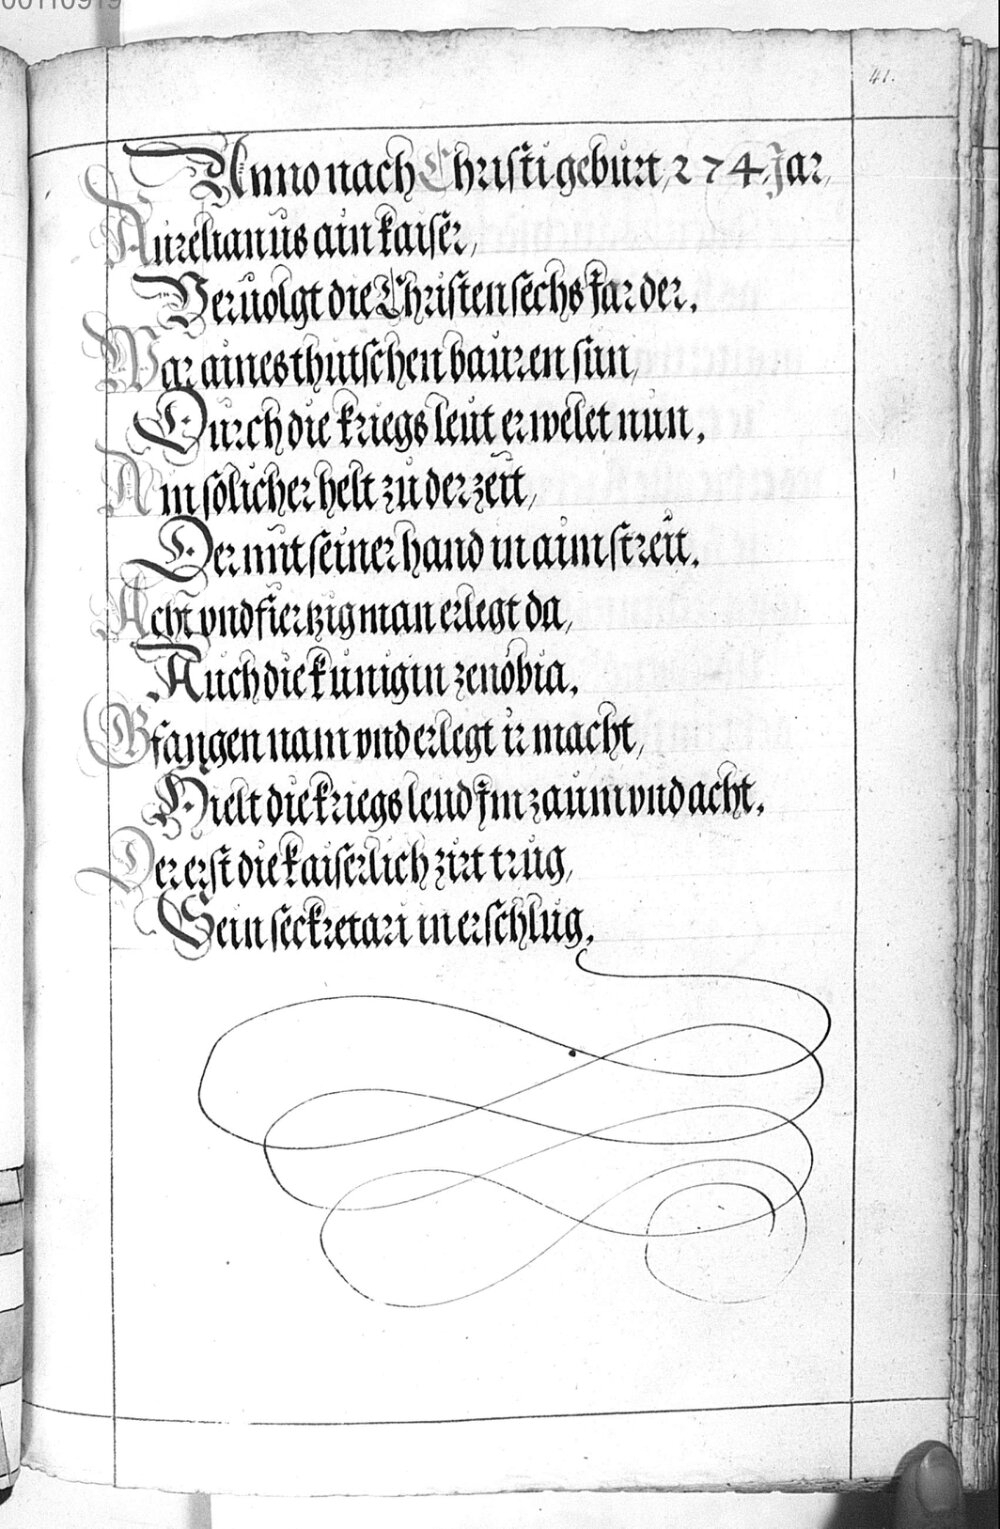 00110919
41.
Anno nach Christi geburt, 274. Jar,
Aurelianus ain kaiser,
Veruolgt die Christen sechs Jar der.
War aines thutschen bauren sun,
Durch die kriegs leut erwelet nun.
Ain sölicher helt zu der zeit,
Der mit seiner hand in aim streit.
Acht vnd fiertzig man erlegt da,
Auch die künigin zenobia.
Gfangen nam vnd erlegt ir macht,
Hielt die kriegs leud Im zaum vnd acht.
Der erst die kaiserlich zirt trug,
Sein seckretari in erschlug.